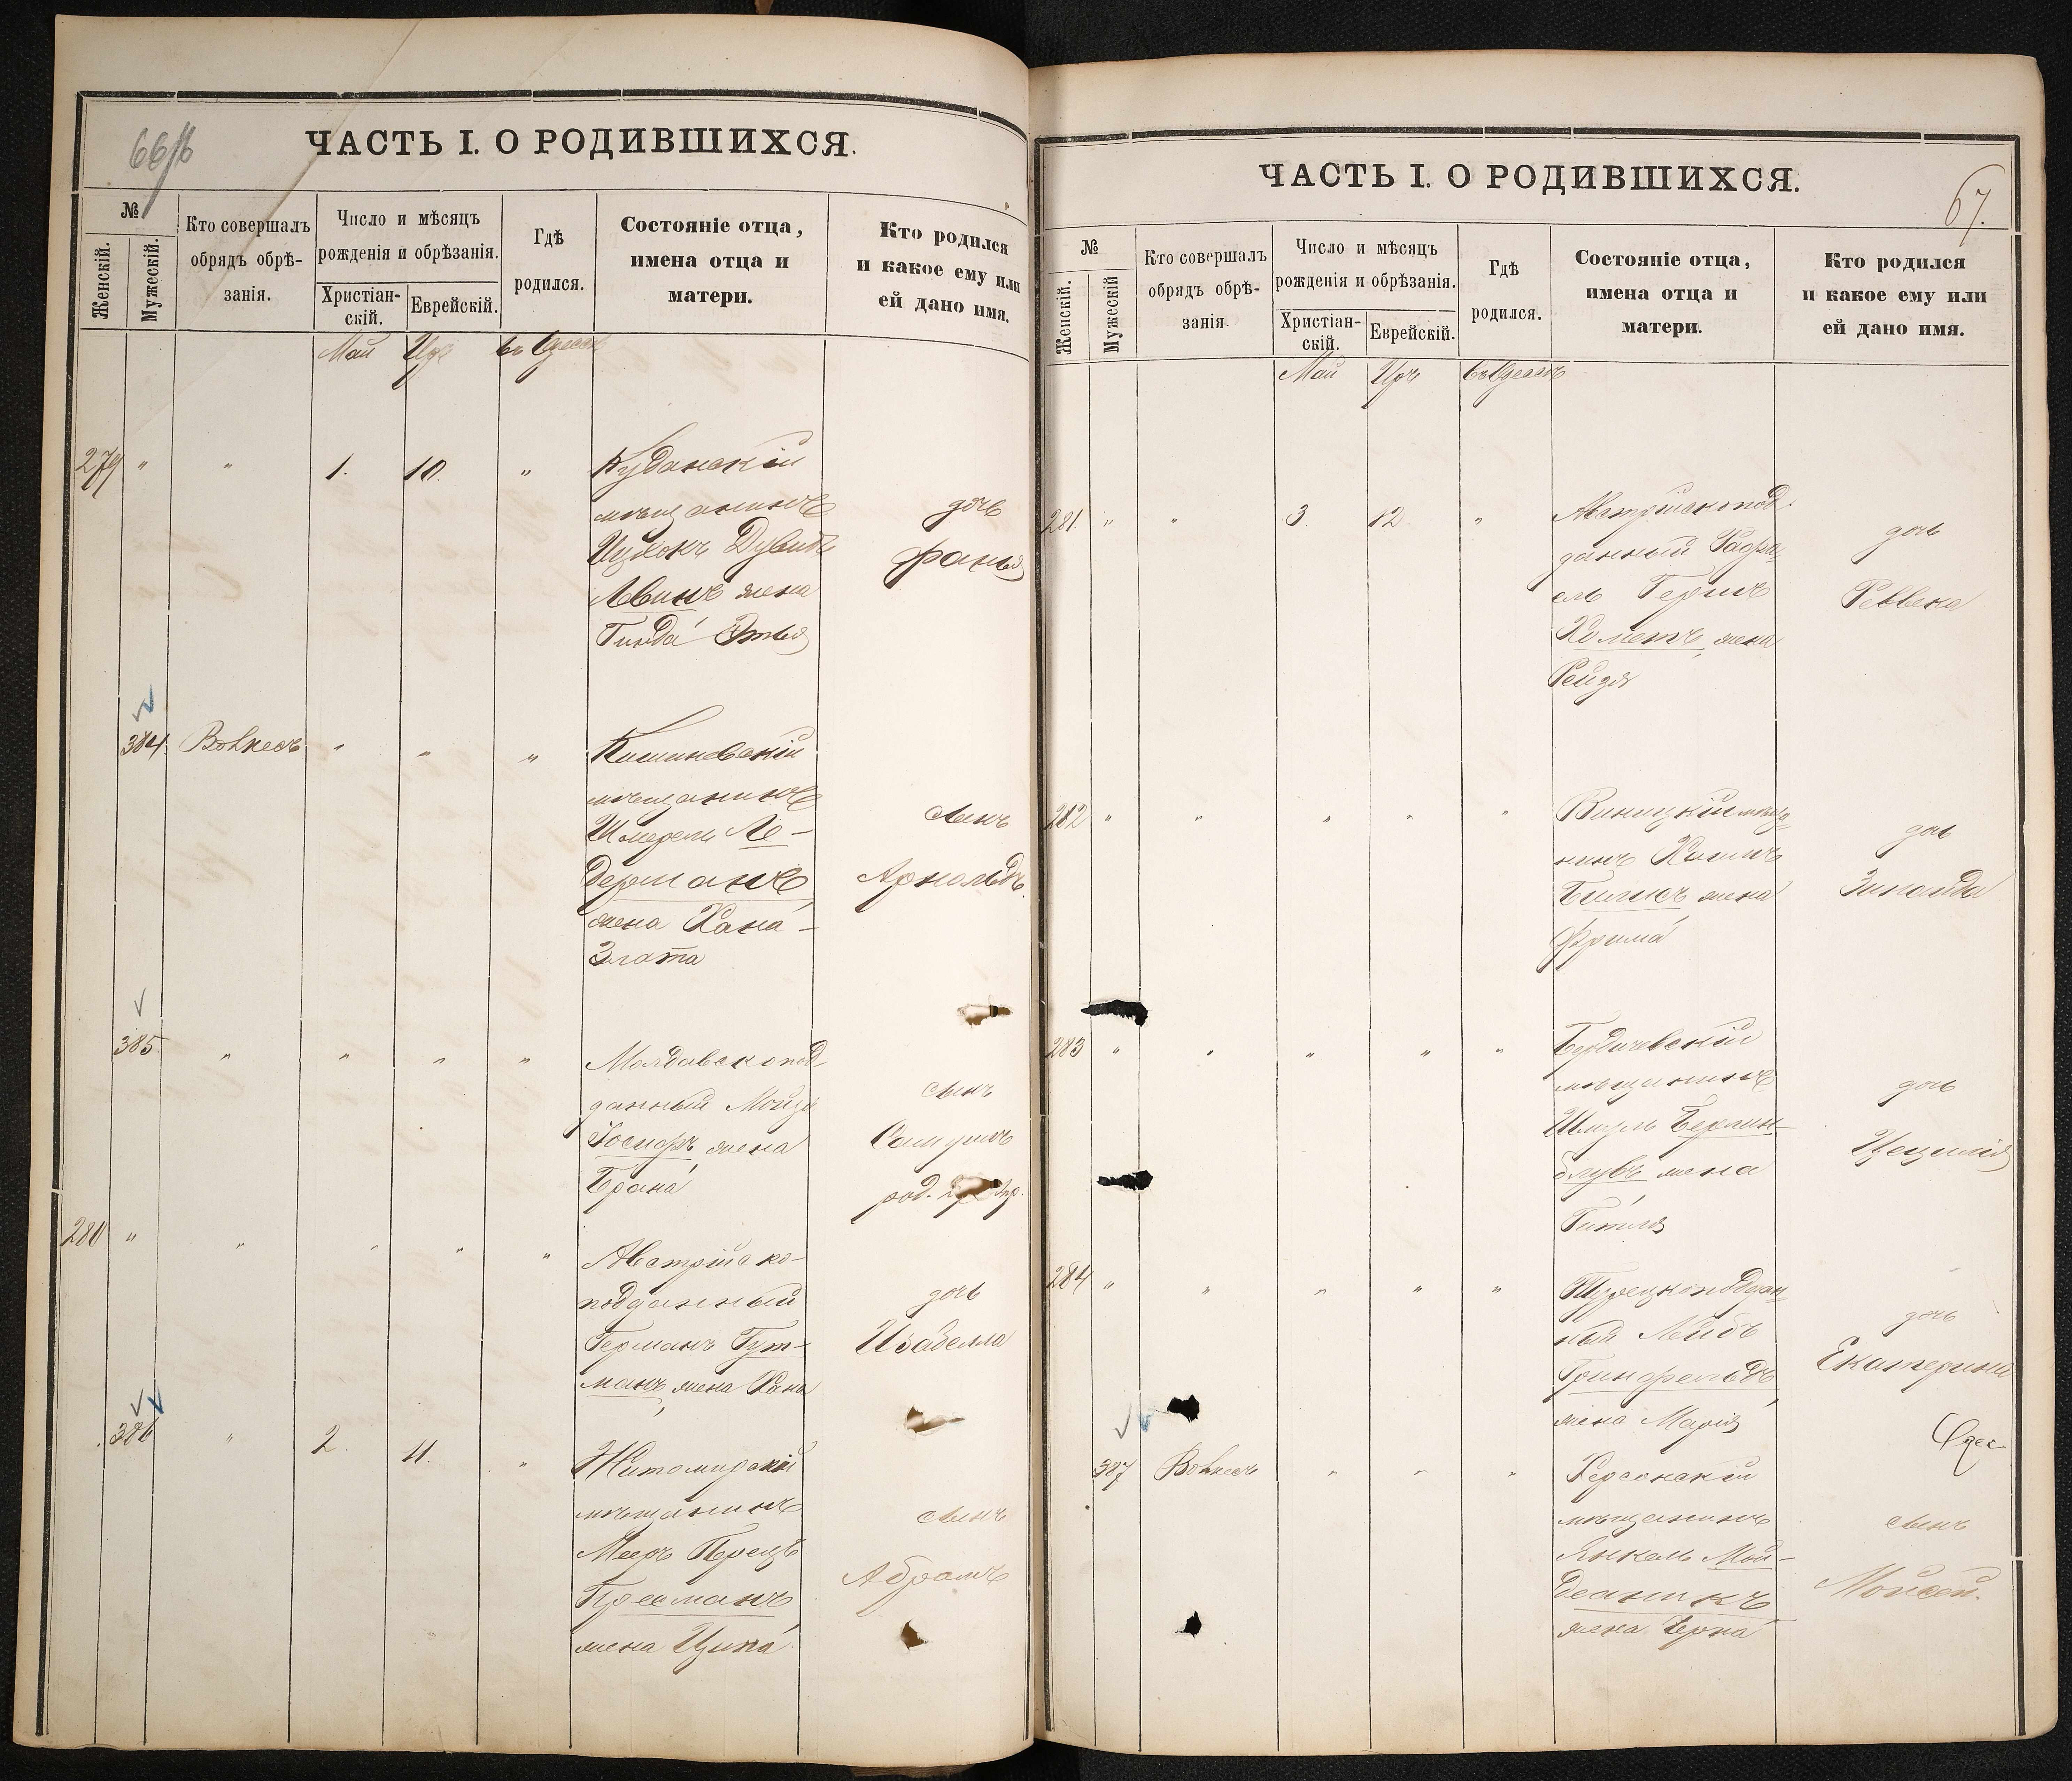 66/б
ЧАСТЬ I. О РОДИВШИХСЯ.
№
Женскій.
Мужескій.
Кто совершалъ
обрядъ обрѣ-
занія.
Число и мѣсяцъ
рожденія и обрѣзанія.
Христіан-
скій.
Еврейскій.
Гдѣ
родился.
Состояніе отца,
имена отца и
матери.
Кто родился
и какое ему или
ей дано имя.
Май Иръ въ Одессѣ
279 " " 1. 10. "
мѣщанинъ
Ицхокъ Дувидъ
Левинъ жена
Гинда Этья
дочь
Фаня
384. " " "
Кишиневскій
мѣщанинъ
Шмерель Ле-
дерманъ
жена Хана-
Злата
сынъ
Арнольдъ.
385 " " " "
Молдавскопод
данный
Іосифъ жена
Брана
сынъ
род.
280 " " " " "
Австрійско-
подданный
Германъ Гут-
манъ жена Хана
дочь
Изабелла
386 " 2. 11. "
Житомирскій
мѣщанинъ
Мееръ Перецъ
Пресманъ
жена Ципа
сынъ
Абрамъ
67.
ЧАСТЬ I. О РОДИВШИХСЯ.
№
Женскій.
Мужескій
Кто совершалъ
обрядъ обрѣ-
занія
Число и мѣсяцъ
рожденія и обрѣзанія.
Христіан-
скій.
Еврейскій.
Гдѣ
родился.
Состояніе отца,
имена отца и
матери.
Кто родился
и какое ему или
ей дано имя.
Май Иръ въ Одессѣ
281. " " 3. 12 "
Австрійскопод.
данный Рафа-
ель Гершъ
жена
Рейзя
дочь
Реввека
282 " " " " "
Виницкій мѣща-
нинъ Хаимъ
жена
Фрима
дочь
Зинаида
283 " " " " "
Бердичевскій
мѣщанинъ
Шмуль Берлин-
блувъ жена
Гитля
дочь
Цецилія
284 " " " " "
Турецкоподдан-
ный Лейбъ
Гринфельдъ
жена Марія
дочь
Екатерина
387 " " "
Херсонскій
мѣщанинъ
Янкель Мой-
жена Черна
сынъ
Мойсей.